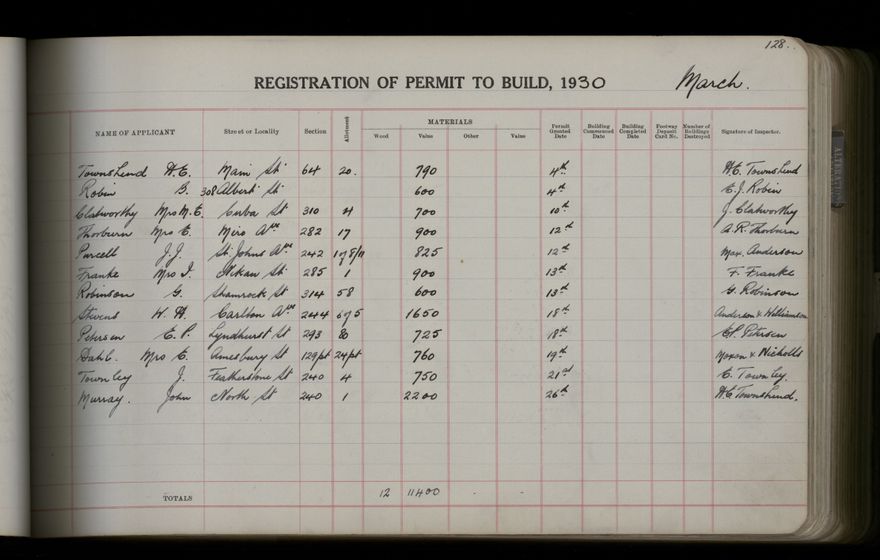 128.
REGISTRATION OF PERMIT TO BUILD, 1930 March.
NAME OF APPLICANT Street or Locality Section Allotment MATERIALS Permit Granted Date Building Commenced Date Building Completed Date Footway Deposit Card No. Number of Buildings Destroyed Signature of Inspector.
Wood Value Other Value
Townshend H.E. Main St 64 20. 790 4th H.E. Townshend
Robin G. 308 Albert St 600 4th E.J. Robin
Clatworthy Mrs M.E. Cuba St 310 4 700 10th J. Clatworthy
Thorburn Mrs E. Miro Ave 282 17 900 12th A.R. Thorburn
Purcell J.J. St. Johns Ave 242 825 12th Max. Anderson
Franke Mrs I. Nikau St 285 1 900 13th F. Franke
Robinson G. Shamrock St 314 58 600 13th G. Robinson
Stevens W.H. Carlton Ave 244 6 of 5 1650 18th Anderson & Williamson
Petersen E.P. Lyndhurst St 293 725 18th E.P. Petersen
Mrs E. Amesbury St 129pt 24pt 760 19th Moxon & Nicholls
Townley J. Featherstone St 240 4 750 21st C. Townley.
Murray. John North St 240 1 2200 26th H.E. Townshend.
TOTALS 12 11400 - -
ALTERATION